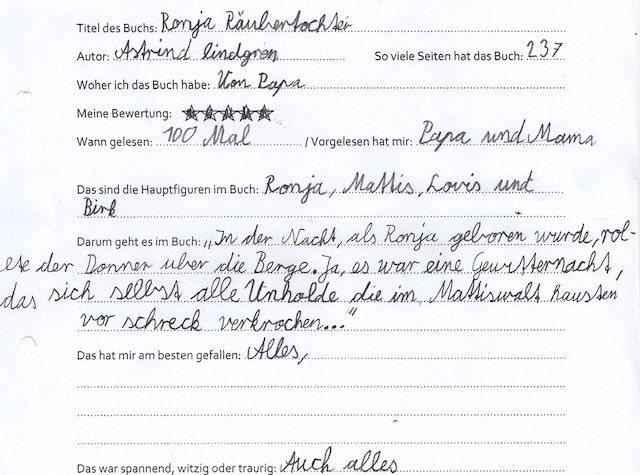 Titel des Buchs: Ronja Räubertochter
Autor: Astrind lindgren So viele Seiten hat das Buch: 237
Woher ich das Buch habe: Von Papa
Meine Bewertung: ★★★★★
Wann gelesen: 100 Mal / Vorgelesen hat mir: Papa und Mama
Das sind die Hauptfiguren im Buch: Ronja, Mattis, Lovis und
Birk
Darum geht es im Buch: „In der Nacht, als Ronja geboren wurde, rol-
ete der Donner uber die Berge. Ja, es war eine Gewitternacht,
das sich selbst alle Unholde die im Mattiswalt hausten
vor schreck verkrochen..."
Das hat mir am besten gefallen: Alles,
Das war spannend, witzig oder traurig: Auch alles